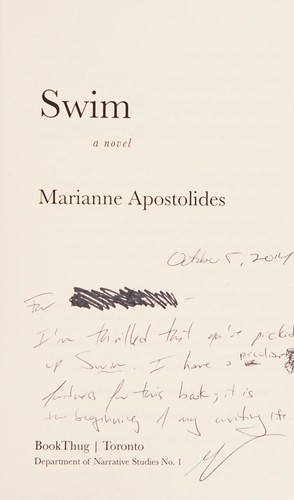 Swim
a novel
Marianne Apostolides
October 5, 2014
For
I'm thrilled that you've picked
up Swim. I have a peculiar
fondness for this book; it is
the beginning of my writing life.
BookThug | Toronto
Department of Narrative Studies No. 1